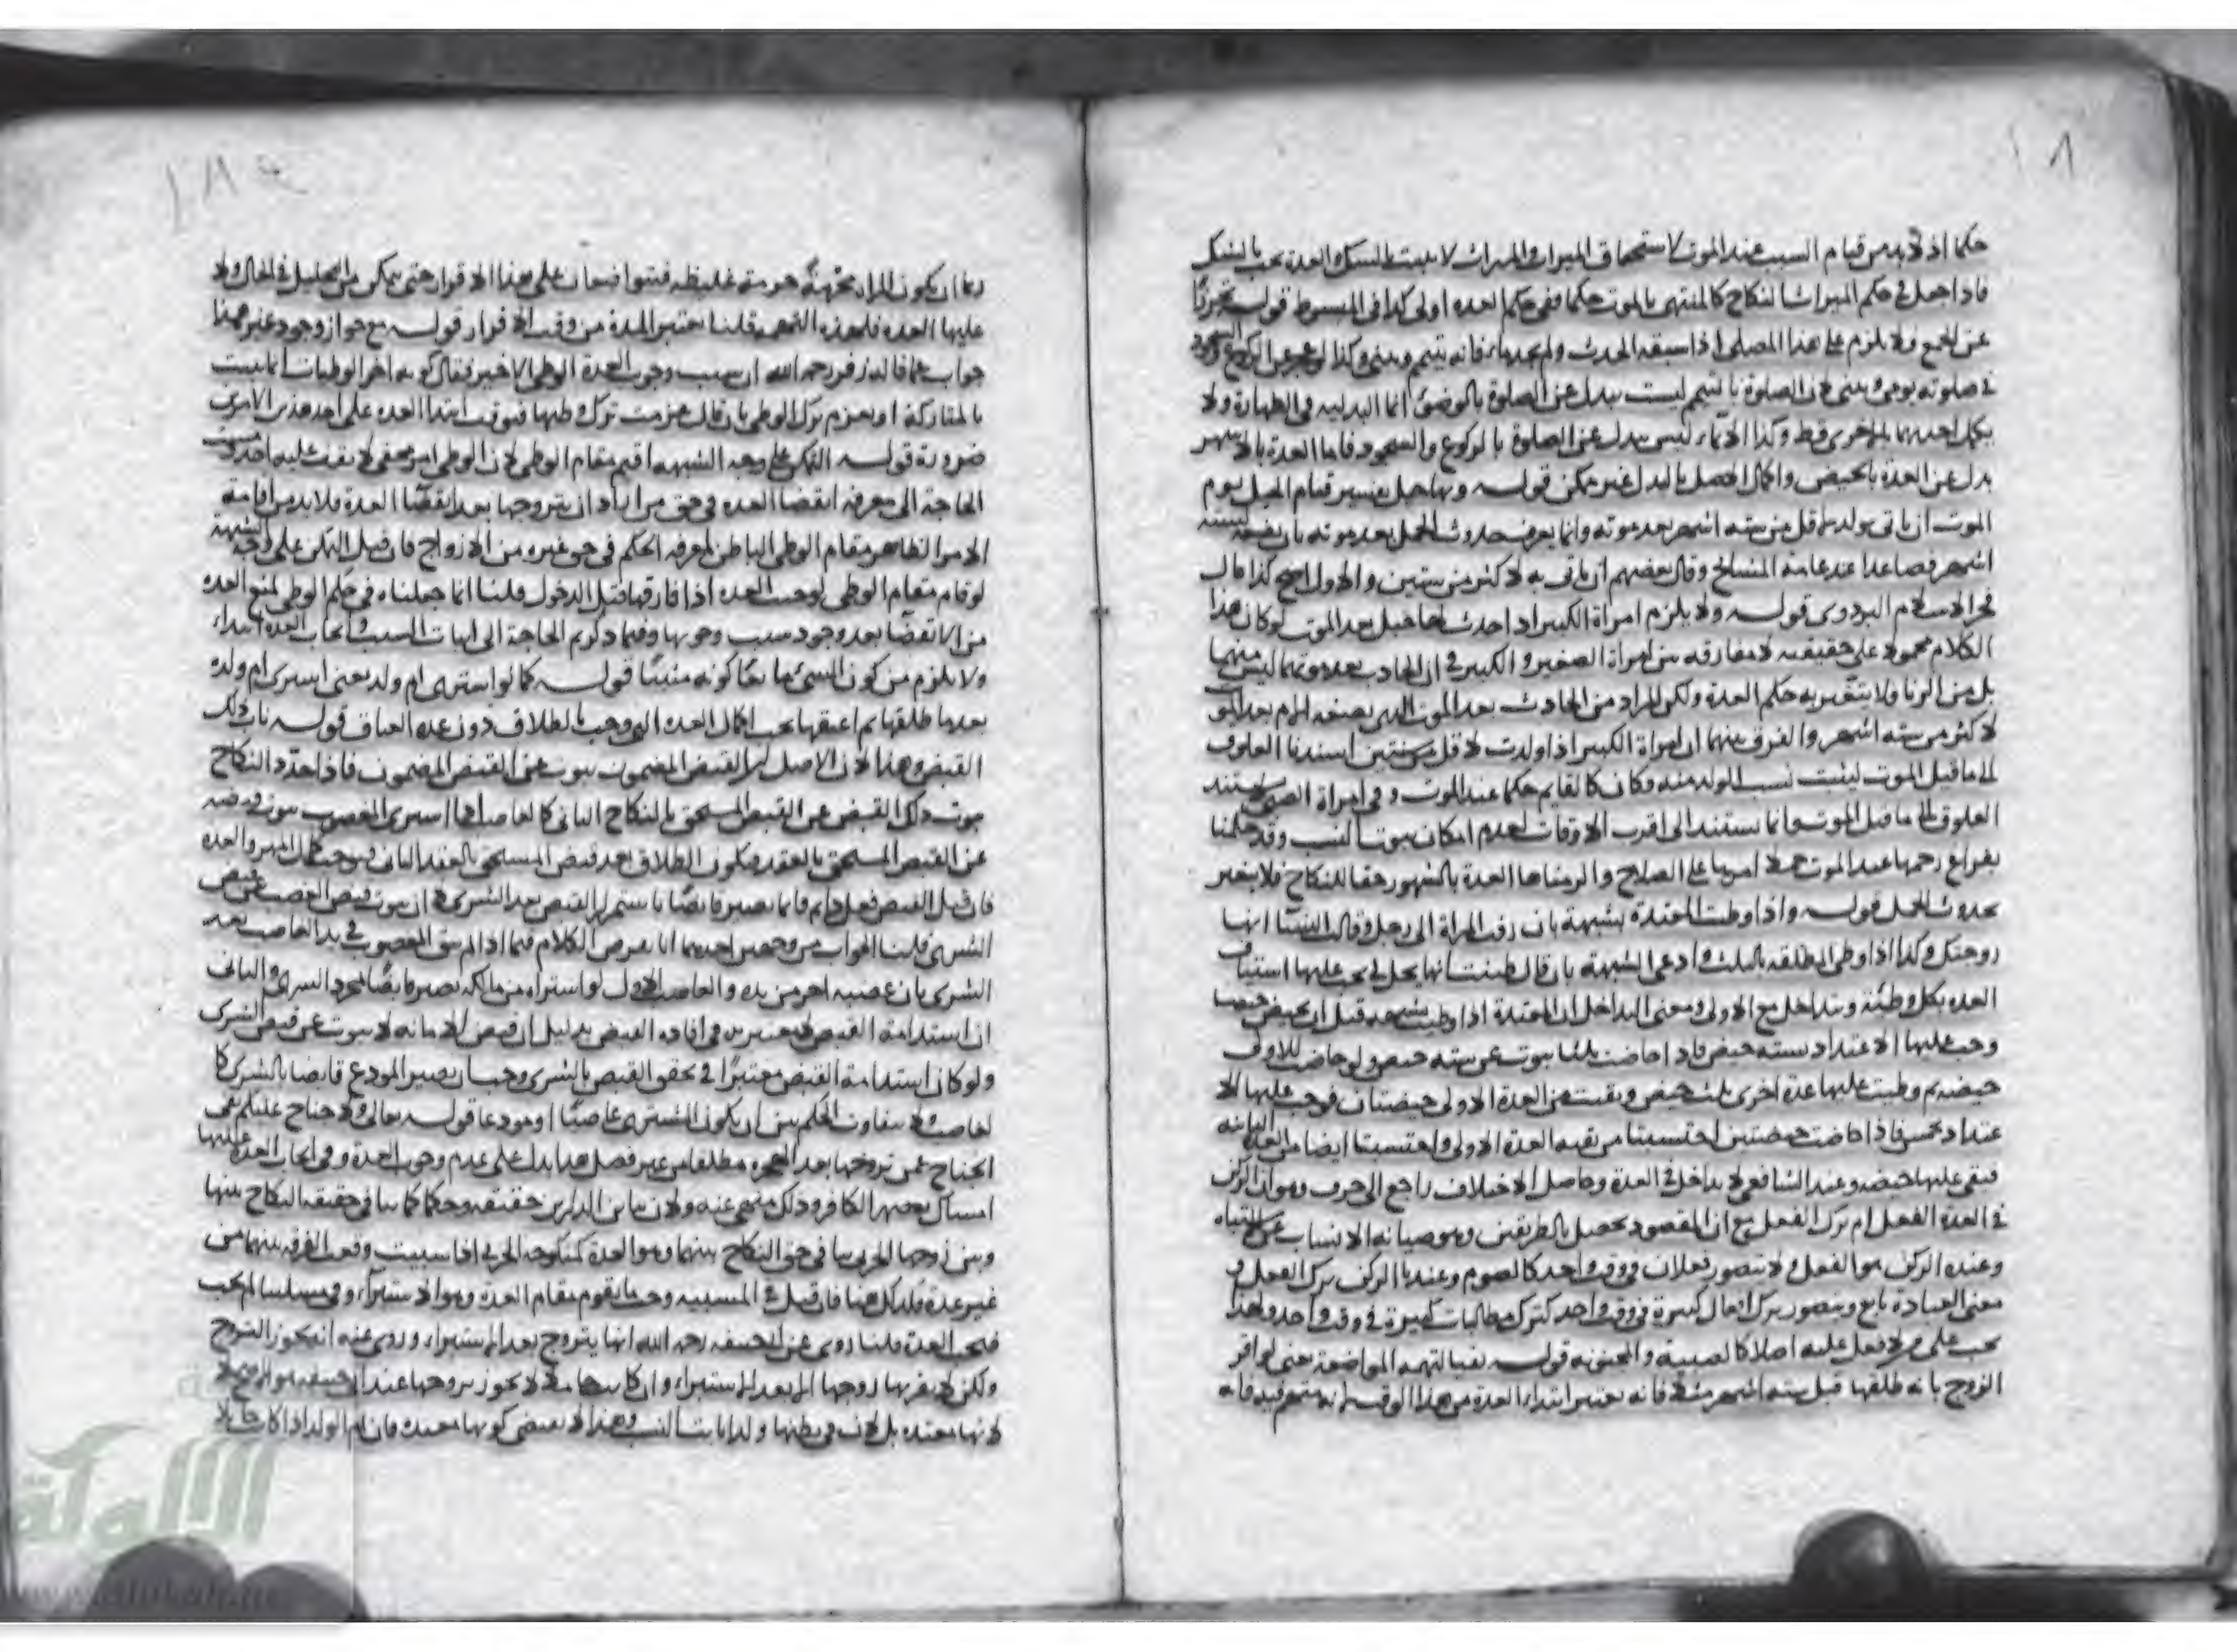 حكما اذ لا بد من قيام السبب عند الموت لاستحقاق الميراث والميراث لا يثبت بالشك والعدة تجب بالشك
فاذا جعل في حكم الميراث النكاح كالمنتهى بالموت حكما ففي حكم العدة اولى كذا في المبسوط قوله تحرزا
عن الجمع ولا يلزم على هذا المصلى اذا سبقه الحدث ولم يجد ماء فانه يتيمم ويبنى وكذا لو عجز عن الركوع والسجود
في صلوته يومى ويبنى لان الصلوة بالتيمم ليست ببدل عن الصلوة بالوضوء انما البدلية في الطهارة ولا
يكمل احديهما بالاخرى قط وكذا الايماء ليس ببدل عن الصلوة بالركوع والسجود فاما العدة بالاشهر
بدل عن العدة بالحيض واكمال الاصل بالبدل غير ممكن قوله وبها حبل تفسير قيام الحبل يوم
الموت ان تاتى بولد لاقل من ستة اشهر بعد موته وانما يعرف حدوث الحبل بعد موته بان تضعه لستة
اشهر فصاعدا عند عامة المشايخ وقال بعضهم ان تاتى به لاكثر من سنتين والاول اصح كذا قال
فخر الاسلام البزدوى قوله ولا يلزم امراة الكبير اذا حدث لها حبل بعد الموت لو كان هذا
الكلام محمولا على حقيقته لا مفارقة بين امراة الصغير والكبير في ان الحادث بعد موتهما ليس منهما
بل من الزنا ولا يتغير به حكم العدة ولكن المراد من الحادث بعد الموت الذى تضعه لتمام بعد الموت
لاكثر من ستة اشهر والفرق بينهما ان امراة الكبير اذا ولدت لاقل من سنتين اسندنا العلوق
الى ما قبل الموت ليثبت نسب الولد منه وكان كالقايم حكما عند الموت وفي امراة الصبى لا يستند
العلوق الى ما قبل الموت وانما يستند الى اقرب الاوقات لعدم امكان ثبوت النسب وقد حكمنا
بفراغ رحمها عند الموت حملا لامرها على الصلاح والزمناها العدة بالشهور حقا للنكاح فلا يتغير
بحدوث الحبل قوله واذا وطئت المعتدة بشبهة بان زفت المراة الى رجل وقالت النساء انها
زوجتك وكذا اذا وطى المطلقة بالثلث وادعى الشبهة بان قال ظننت انها تحل لي يجب عليها استيناف
العدة بكل وطئة وتتداخل مع الاولى ومعنى التداخل ان المعتدة اذا وطئت بشبهة قبل ان تحيض حيضا
وجب عليها الاعتداد بستة حيض فاذا حاضت ثلثا نوبت عن ستة حيض ولو حاضت للاولى
حيضة ثم وطئت عليها عدة اخرى ثلث حيض وبقيت من العدة الاولى حيضتان فوجب عليها الا
عتداد بخمس فاذا حاضت حيضتين احتسبتا من بقية العدة الاولى واحتسبتا ايضا من العدة الثانية
فبقى عليها حيضة وعند الشافعي لا تداخل في العدة وحاصل الاختلاف راجع الى حرف وهو ان الركن
في العدة الفعل ام ترك الفعل مع ان المقصود يحصل بالطريقين وهو صيانة الانساب عن الاشتباه
وعنده الركن هو الفعل ولا يتصور فعلان في وقت واحد كالصوم وعندنا الركن ترك الفعل و
معنى العبادة تابع ويتصور ترك افعال كثيرة في وقت واحد كترك مطالبات كثيرة في وقت واحد ولهذا
تجب على من لا فعل عليه اصلا كالصبية والمجنونة قوله نفيا لتهمة المواضعة يعنى لو اقر
الزوج بانه طلقها قبل ستة اشهر مثلا فانه يعتبر ابتداء العدة من هذا الوقت لانه متهم فيه فانه
ربما ان يكون المراة محرمة حرمة غليظة فيتواضعان على هذا الاقرار حتى يتمكن من التحليل في الحال ولا
عليها العدة فلهذه التهمة قلنا يعتبر المدة من وقت الاقرار قوله مع جواز وجود غيره هذا
جواب عما قال زفر رحمه الله ان سبب وجوب العدة الوطى الاخير فقال كونه آخر الوطيات انما يثبت
بالمتاركة او بعزم ترك الوطى بان قال عزمت ترك وطيها فيوقف ابتداء العدة على احد هذين الامرين
ضرورة قوله التمكن على وجه الشبهة اقيم مقام الوطى لان الوطى امر مخفى لا يقف عليه احد ومست
الحاجة الى معرفة انقضاء العدة في حق من اراد ان يتزوجها بعد انقضاء العدة فلا بد من اقامة
الامر الظاهر مقام الوطى الباطن لمعرفة الحكم في حق غيره من الازواج فان قيل التمكن على وجه الشبهة
لو قام مقام الوطى لوجبت العدة اذا فارقها قبل الدخول قلنا انما جعلناه في حكم الوطى لمنع العدة
من الانقضاء بعد وجود سبب وجوبها وفيما ذكرتم الحاجة الى اثبات السبب وايجاب العدة ابتداء
ولا يلزم من كون الشئ مانعا كونه مثبتا قوله كما لو اشترى ام ولده يعنى اشترى ام ولده
بعد ما طلقها ثم اعتقها يجب اكمال العدة التى وجبت بالطلاق دون عدة العتاق قوله ناب ذلك
القبض وهذا لان الاصل ان القبض المضمون ينوب عن القبض المضمون فاذا جدد النكاح
ينوب ذلك القبض عن القبض المستحق بالنكاح الثانى كالغاصب اذا اشترى المغصوب ينوب قبضه
عن القبض المستحق بالعقد فيكون الطلاق بعد قبض المستحق بالعقد الثانى فيوجب كمال المهر والعدة
فان قيل القبض فعل دايم فانما يصير قابضا باستمرار القبض بعد الشرى لا ان ينوب قبض الغصب عن قبض
الشرى قلنا الجواب من وجهين احديهما انا نفرض الكلام فيما اذا لم يبق المغصوب في يد الغاصب بعد
الشرى بان غصبه آخر من يده والغاصب الاول لو اشتراه من مالكه يصير قابضا بمجرد الشرى والثانى
ان استدامة القبض لا يعتبر به في افادة القبض بدليل ان قبض الامانة لا ينوب عن قبض الشرى
ولو كان استدامة القبض معتبرا في تحقق القبض بالشرى وجب ان يصير المودع قابضا بالشرى كا
لغاصب ولا يتفاوت الحكم بين ان يكون المشترى غاصبا او مودعا قوله تعالى ولا جناح عليكم نفى
الجناح عمن تزوجها بعد الهجرة مطلقا من غير فصل هذا يدل على عدم وجوب العدة وفي ايجاب العدة عليها
امساك بعصم الكافر وذلك منهى عنه ولان تباين الدارين حقيقة وحكما كما ينافى حقيقة النكاح بينها
وبين زوجها الحربى ينافى حق النكاح بينهما وهو العدة كمنكوحة الحربى اذا سبيت وقعت الفرقة بينهما من
غير عدة فكذلك هنا فان قيل في المسبية وجب ما يقوم مقام العدة وهو الاستبراء وفي مسئلتنا لم يجب
فتجب العدة قلنا روى عن ابى حنيفة رحمه الله انها يتزوج بعد الاستبراء وروى عنه انه يجوز التزوج
ولكن لا يقربها زوجها الا بعد الاستبراء وان كانت حاملا لا يجوز تزوجها عند ابى حنيفة هو الاصح لا
لانها معتدة بل لان في بطنها ولدا ثابت النسب وهذا لا يقتضى كونها معتدة فان ام الولد اذا كانت حاملا